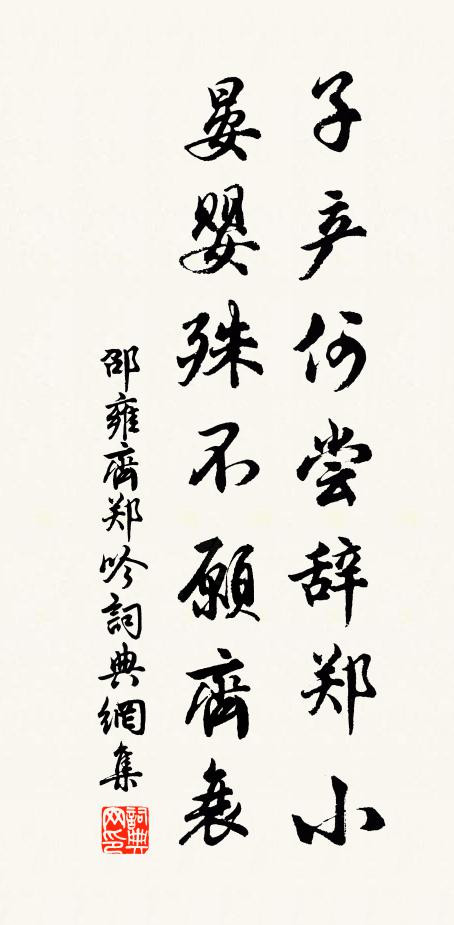 子产何尝辞郑小
晏婴殊不愿齊衰
邵雍齊郑吟詞典網集
詞典网印